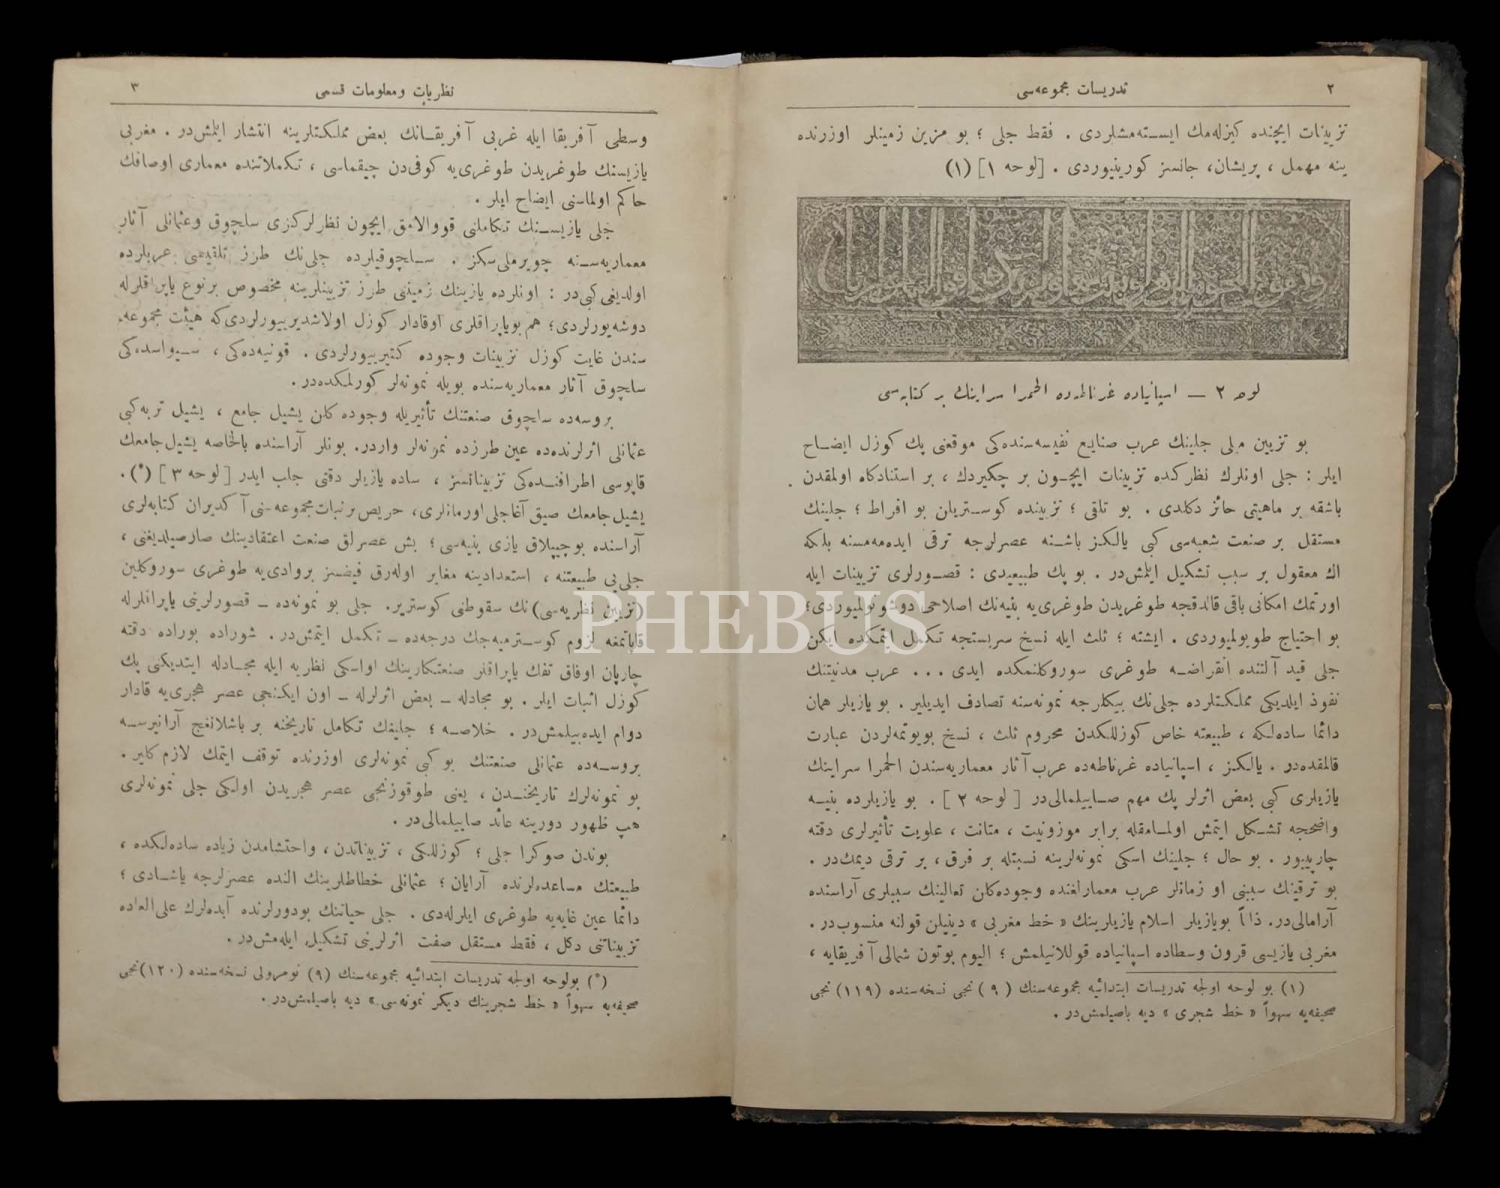 ٢
تدریسات مجموعه‌سی
تزیینات ایچنده كیزله‌مك ایسته‌مشلردی . فقط جلی ؛ بو مزین زمینلر اوزرنده
ینه مهمل ، پریشان، جانسز كورینیوردی . [لوحه ١] (١)
لوحه ٢ — اسپانیاده غرناطه‌ده الحمرا سراینك بر كتابه‌سی
بو تزیین میلی جلینك عرب صنایع نفیسه‌سنده‌كی موقعنی پك كوزل ایضاح
ایلر : جلی اونلرك نظرنده تزیینات ایچون بر چكیردك ، بر استنادكاه اولمقدن
باشقه بر ماهیتی حائز دكلدی . بو تلقی ؛ تزیینده كوستریلن بو افراط ؛ جلینك
مستقل بر صنعت شعبه‌سی كبی یالكز باشنه عصرلرجه ترقی ایده‌مه‌مسنه بلكه
اك معقول بر سبب تشكیل ایلمش‌در . بو پك طبیعیدی : قصورلری تزیینات ایله
اورتمك امكانی باقی قالدقجه طوغریدن طوغری‌یه بنیه‌نك اصلاحی دوشونولمیوردی؛
بو احتیاج طویولمیوردی . ایشته ؛ ثلث ایله نسخ سربستجه تكمل ایتمكده ایكن
جلی قید آلتنده انقراضه طوغری سوروكلنمكده ایدی ... عرب مدنیتنك
نفوذ ایلدیكی مملكتلرده جلی‌نك بیكلرجه نمونه‌سنه تصادف ایدیلیر . بو یازیلر همان
دائما ساده‌لكه ، طبیعته خاص كوزللكدن محروم ثلث ، نسخ بویوتمه‌لردن عبارت
قالمقده‌در . یالكز ، اسپانیاده غرناطه‌ده عرب آثار معماریه‌سندن الحمرا سراینك
یازیلری كبی بعض اثرلر پك مهم صاییلمالی‌در [ لوحه ٢ ] . بو یازیلرده بنیه
واضحجه تشكل ایتمش اولمامقله برابر موزونیت ، متانت ، علویت تأثیرلری دقته
چارپییور . بو حال ؛ جلینك اسكی نمونه‌لرینه نسبتله بر فرق ، بر ترقی دیمك‌در .
بو ترقینك سببنی او زمانلر عرب معمارلغنده وجوده‌كلن تعالینك سببلری آراسنده
آرامالی‌در. ذاتاً بویازیلر اسلام یازیلرینك « خط مغربی » دینیلن قولنه منسوب‌در .
مغربی یازیسی قرون وسطاده اسپانیاده قوللانیلمش ؛ الیوم بوتون شمالی آفریقایه ،
(١) بو لوحه اولجه تدریسات ابتدائیه مجموعه‌سنك ( ٩ ) نجی نسخه‌سنده (١١٩) نجی
صحیفه‌یه سهواً « خط شجری » دیه باصیلمش‌در .
نظریات ومعلومات قسمی
٣
وسطی آفریقا ایله غربی آفریقانك بعض مملكتلرینه انتشار ایلمش‌در . مغربی
یازیسنك طوغریدن طوغری‌یه كوفی‌دن چیقماسی ، تكملاتنده معماری اوصافك
حاكم اولماسنی ایضاح ایلر .
جلی یازیسنك تكاملنی قووالامق ایچون نظرلركزی سلچوق وعثمانلی آثار
معماریه‌سنه چویرملی‌سكز . سلچوقیلرده جلی‌نك طرز تلقیسی عربلرده
اولدیغی كبی‌در : اونلرده یازینك زمینی طرز تزیینلرینه مخصوص برنوع یاپراقلرله
دوشه‌یورلردی؛ هم بویاپراقلری اوقادار كوزل اولاشدیرییورلردی‌كه هیئت مجموعه‌
سندن غایت كوزل تزیینات وجوده كتیرییورلردی . قونیه‌ده‌كی ، سیواسده‌كی
سلچوق آثار معماریه‌سنده بویله نمونه‌لر كورلمكده‌در .
بروسه‌ده سلچوق صنعتنك تأثیریله وجوده كلن یشیل جامع ، یشیل تربه‌كبی
عثمانلی اثرلرنده‌ده عین طرزده نمونه‌لر واردر. بونلر آراسنده بالخاصه یشیل‌جامعك
قاپوسی اطرافنده‌كی تزییناتسز ، ساده یازیلر دقتی جلب ایدر [ لوحه ٣ ] (*) .
یشیل‌جامعك صیق آغاجلی‌اورمانلری، حریص برنبات‌مجموعه‌سنی آكدیران كتابه‌لری
آراسنده بوچیپلاق یازی بنیه‌سی ؛ بش عصرلق صنعت اعتقادینك صارصیلدیغنی ،
جلی‌یی طبیعتنه ، استعدادینه مغایر اوله‌رق فیضسز بروادی‌یه طوغری سوروكلین
(تزیین نظریه‌سی) نك سقوطنی كوستریر. جلی بو نمونه‌ده — قصورلرینی یاپراقلرله
قاپاتمغه لزوم كوسترمیه‌جك درجه‌ده — تكمل ایتمش‌در . شوراده بوراده دقته
چارپان اوفاق تفك یاپراقلر صنعتكارینك اواسكی نظریه ایله مجادله ایتدیكنی پك
كوزل اثبات ایلر . بو مجادله — بعض اثرلرله — اون ایكنجی عصر هجری‌یه قادار
دوام ایده‌بیلمش‌در . خلاصه ؛ جلینك تكامل تاریخنه بر باشلانغیج آرانیرسه
بروسه‌ده عثمانلی صنعتنك بو كبی نمونه‌لری اوزرنده توقف ایتمك لازم كلیر .
بو نمونه‌لرك تاریخندن ، یعنی طوقوزنجی عصر هجریدن اولكی جلی نمونه‌لری
هپ ظهور دورینه عائد صاییلمالی‌در .
بوندن صوكرا جلی ؛ كوزللكی ، تزییناتدن، واحتشامدن زیاده ساده‌لكده ،
طبیعتك مساعده‌لرنده آرایان ؛ عثمانلی خطاطلرینك النده عصرلرجه یاشادی ؛
دائما عین غایه‌یه طوغری ایلرله‌دی . جلی حیاتنك بودورلرنده آبده‌لرك علی‌العاده
تزییناتی دكل ، فقط مستقل صفت اثرلرینی تشكیل ایله‌مش‌در .
(*) بولوحه اولجه تدریسات ابتدائیه مجموعه‌سنك (٩) نومرولی نسخه‌سنده (١٢٠)نجی
صحیفه‌یه سهواً « خط شجرینك دیكر نمونه‌سی » دیه باصیلمش‌در .
PHEBUS